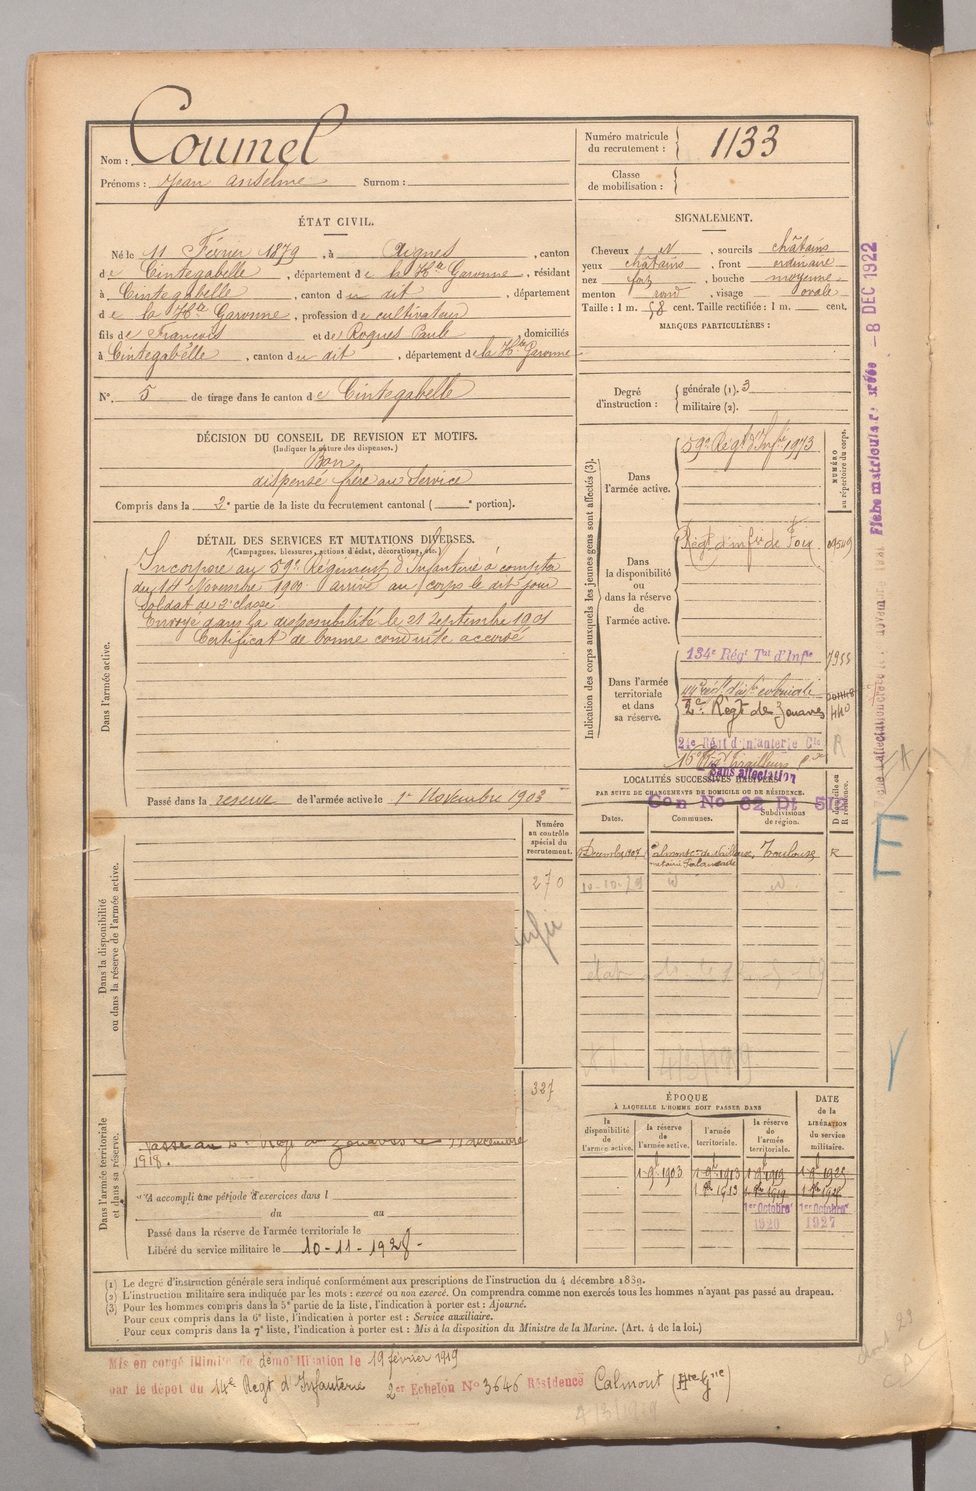 Nom : Coumel
Prénoms : Jean Anselme Surnom :
Numéro matricule du recrutement : 1133
Classe de mobilisation :
ÉTAT CIVIL.
Né le 11 Février 1879, à Aignes, canton
de Cintegabelle, département de la Hte Garonne, résidant
à Cintegabelle, canton du dit, département
de la Hte Garonne, profession de cultivateur
fils de François et de Roques Paule, domiciliés
à Cintegabelle, canton du dit, département de la Hte Garonne
No. 5 de tirage dans le canton de Cintegabelle
DÉCISION DU CONSEIL DE REVISION ET MOTIFS.
(Indiquer la nature des dispenses.)
Bon
dispensé frère au Service
Compris dans la 2e partie de la liste du recrutement cantonal ( e portion).
DÉTAIL DES SERVICES ET MUTATIONS DIVERSES.
(Campagnes, blessures, actions d'éclat, décorations, etc.)
Dans l'armée active.
Incorporé au 59e Régiment d'Infanterie à compter
du 14 Novembre 1900 arrivé au corps le dit jour
Soldat de 2e classe
Envoyé dans la disponibilité le 21 Septembre 1901
Certificat de bonne conduite accordé
Passé dans la réserve de l'armée active le 1er Novembre 1903
Numéro au contrôle spécial du recrutement.
270
Dans la disponibilité ou dans la réserve de l'armée active.
327
Dans l'armée territoriale et dans sa réserve.
Passé au 2e Régt de Zouaves le 11 décembre
1918.
A accompli une période d'exercices dans l
du au
Passé dans la réserve de l'armée territoriale le
Libéré du service militaire le 10-11-1928
SIGNALEMENT.
Cheveux N, sourcils châtains
yeux châtains, front ordinaire
nez fort, bouche moyenne
menton rond, visage ovale
Taille : 1 m. 58 cent. Taille rectifiée : 1 m. cent.
MARQUES PARTICULIÈRES :
Degré d'instruction : générale (1). 3
militaire (2).
Indication des corps auxquels les jeunes gens sont affectés (3).
NUMÉRO au répertoire du corps.
Dans l'armée active.
59e Régt d'Infie 1973
Dans la disponibilité ou dans la réserve de l'armée active.
Régt d'infie de Foix
Dans l'armée territoriale et dans sa réserve.
134e Régt Tal d'Infie 7955
2e Régt de Zouaves
24e Régt d'Infanterie Cle
16e Rgt Tirailleurs
Sans affectation
LOCALITÉS SUCCESSIVES HABITÉES
PAR SUITE DE CHANGEMENTS DE DOMICILE OU DE RÉSIDENCE.
D domicile ou R résidence.
Dates. Communes. Subdivisions de région.
Calmont Toulouse R
ÉPOQUE
À LAQUELLE L'HOMME DOIT PASSER DANS
DATE de la LIBÉRATION du service militaire.
la disponibilité de l'armée active. la réserve de l'armée active. l'armée territoriale. la réserve de l'armée territoriale.
1 9bre 1903 1 9bre 1913 1 9bre 1919 1 9bre 1925
1er Octobre 1er Octobre
1920 1927
(1) Le degré d'instruction générale sera indiqué conformément aux prescriptions de l'instruction du 4 décembre 1889.
(2) L'instruction militaire sera indiquée par les mots : exercé ou non exercé. On comprendra comme non exercés tous les hommes n'ayant pas passé au drapeau.
(3) Pour les hommes compris dans la 5e partie de la liste, l'indication à porter est : Ajourné.
Pour ceux compris dans la 6e liste, l'indication à porter est : Service auxiliaire.
Pour ceux compris dans la 7e liste, l'indication à porter est : Mis à la disposition du Ministre de la Marine. (Art. 4 de la loi.)
Mis en congé illimité de démobilisation le 19 février 1919
par le dépôt du 14e Régt d'Infanterie 2e Echelon No 3646 Résidence Calmont (Hte Gne)
8 DEC 1922